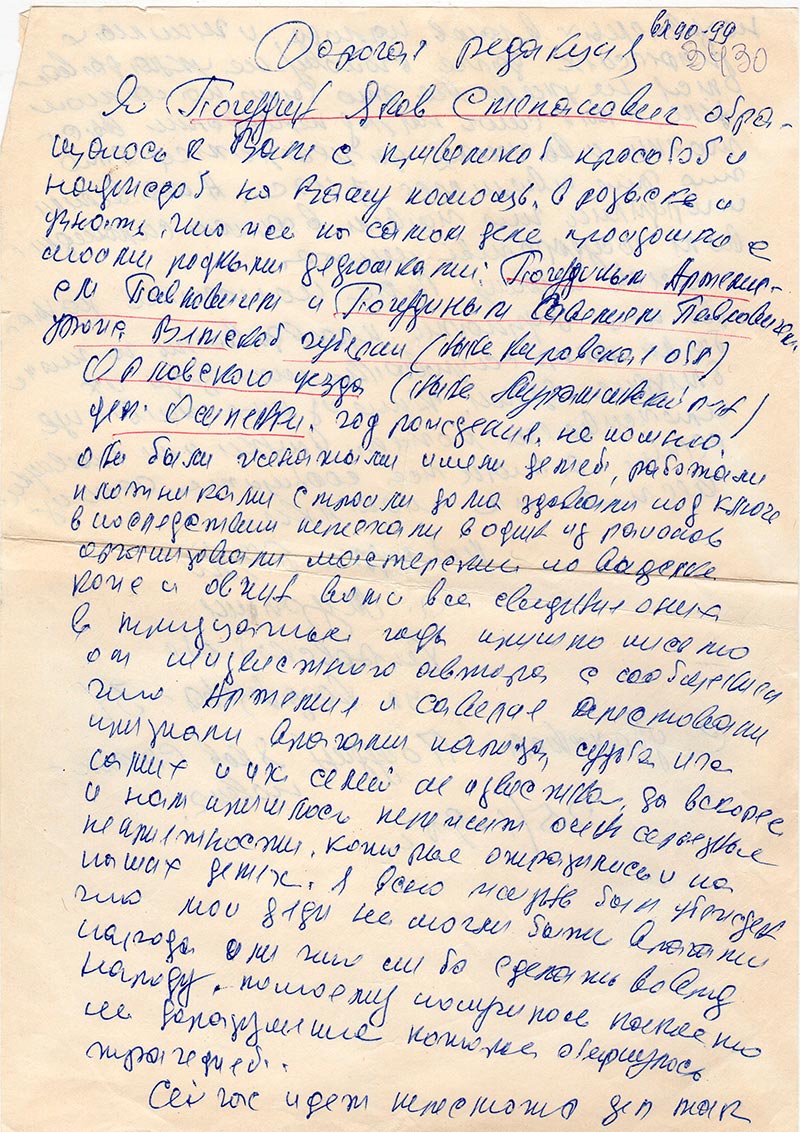 вх 90-99
3430
Дорогая редакция
Я Погудин Яков Степанович обра-
щаюсь к Вам с великой прозьбой и
надеждой на Вашу помощь, в розыске и
узнать, что же на самом деле произошло с
моими родными дедушками: Погудиным Аржени-
ем Павловичем и Погудиным Савелием Павловичем
уроже. Вятской губерни (ныне Кировская обл)
Орловского уезда (ныне р-н)
дер. Осиневки. год рождения, не помню.
они были женатыми имели детей, работали
плотниками строили дома здовали под ключь
в последствии переехали в один из районов
организовали мастерскии по выделке
коже и овчин вот и все сведения о них
в тридцатые годы пришло письмо
от неизвесжного автора с сообщением
что Аржения и Савелия арестовали
признали врагами народа, судьба их
самих и их семей не извесжна, да вскоре
и нам пришлось пережит очен серьезные
неприежности, которые отразились и на
наших детях. Я всю жизнь был убежден
что мои деди не могли быть врагами
народа или что либо сделать во вред
народу, поэтому получилось какое то
не доразумение которое обернулось
трагедией.
Сейчас идет перестойка дел так